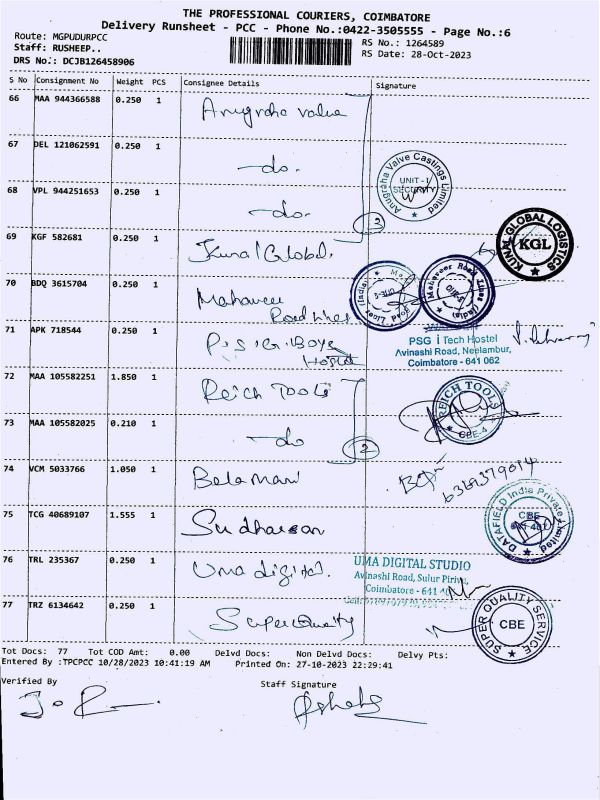 THE PROFESSIONAL COURIERS, COIMBATORE
Delivery Runsheet - PCC - Phone No.:0422-3505555 - Page No.:6
Route: MGPUDURPCC
RS No.: 1264589
Staff: RUSHEEP..
RS Date: 28-Oct-2023
DRS No.: DCJB126458906
S No Consignment No Weight PCS Consignee Details Signature
66 MAA 944366588 0.250 1 Anugraha value
67 DEL 121062591 0.250 1 -do.
Anugraha Valve Castings Limited
UNIT-I
SECURITY
68 VPL 944251653 0.250 1 -do.
3
69 KGF 582681 0.250 1 Kunal Global.
KUNAL GLOBAL LOGISTICS
KGL
70 BDQ 3615704 0.250 1 Mahaveer
Road Lines
Mahaveer Road Lines (India)
71 APK 718544 0.250 1 P.S.G. Boys
Hostel
PSG iTech Hostel
Avinashi Road, Neelambur,
Coimbatore - 641 062
72 MAA 105582251 1.850 1 Reich Tools
REICH TOOLS
CBE-4
73 MAA 105582025 0.210 1 -do
2
74 VCM 5033766 1.050 1 Balamani
6369379014
75 TCG 40689107 1.555 1 Sudharsan
DATAFIELD India Private Limited
CBE
76 TRL 235367 0.250 1 Uma digital.
UMA DIGITAL STUDIO
Avinashi Road, Sulur Pirivu,
Coimbatore - 641
77 TRZ 6134642 0.250 1 Super Quality
SUPER QUALITY SERVICE
CBE
Tot Docs: 77 Tot COD Amt: 0.00 Delvd Docs: Non Delvd Docs: Delvy Pts:
Entered By :TPCPCC 10/28/2023 10:41:19 AM Printed On: 27-10-2023 22:29:41
Verified By Staff Signature